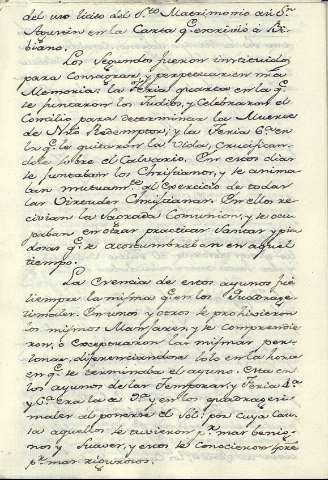 del uso licito del S.to Matrimonio así Sn.
Agustin en la Carta q.e escrivió à
biano.
Los Segundos fueron instituidos
para Consagrar, y perpetuar en n.ra
Memoria la Feria quarta en la q.e
se juntaron los Judios, y Celebraron el
Concilio para determinar la Muerte
de Nro Redemptor; y la Feria 6.a en
la q.e le quitaron la Vida, Crucifican-
dole sobre el Calvario. En estos dias
se juntaban los Christianos, y se anima-
ban mutuam.te al Exercicio de todas
las Virtudes Christianas. En ellos re-
civian la Sagrada Comunion, y se ocu-
paban en otras practicas Santas y pia-
dosas q.e se acostumbraban en aquel
tiempo.
La Crencia de estos ayunos fué
siempre la misma q.e en los Quadrage-
simales. En unos y otros se prohivieron
los mismos Manjares, y se comprendie-
ron, ò exceptuaron las mismas per-
sonas, diferenciandose solo en la hora
en q.e se terminaba el ayuno. Esta en
los ayunos de las Temporas, y Feria 4.a
y 6.a era la de 9.a y en los quadragesi-
males al ponerse el Sol: por cuya Cau-
sa aquellos se tuvieron p.r mas benig-
nos y Suaves, y estos se conocieron spre
p.r mas rigurosos.